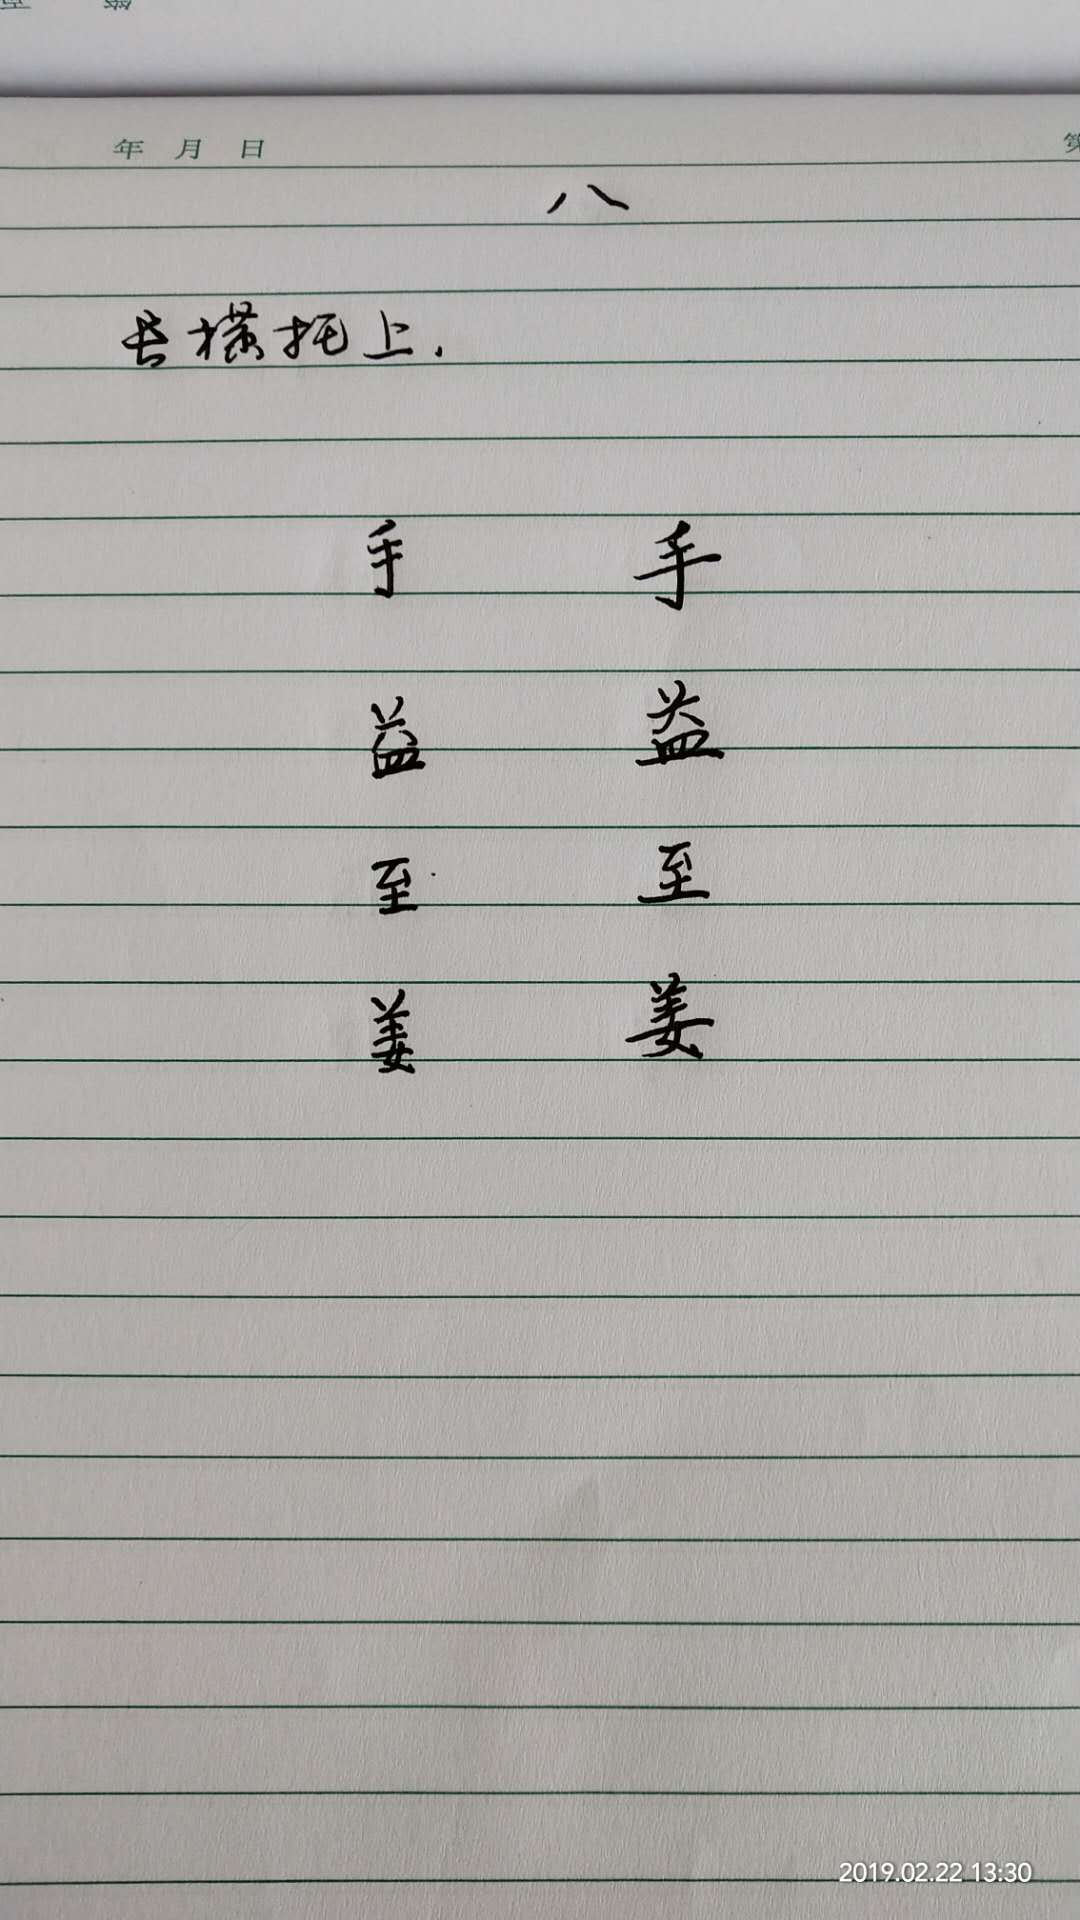 年 月 日
八
长横托上.
手 手
益 益
至 至
姜 姜
2019.02.22 13:30